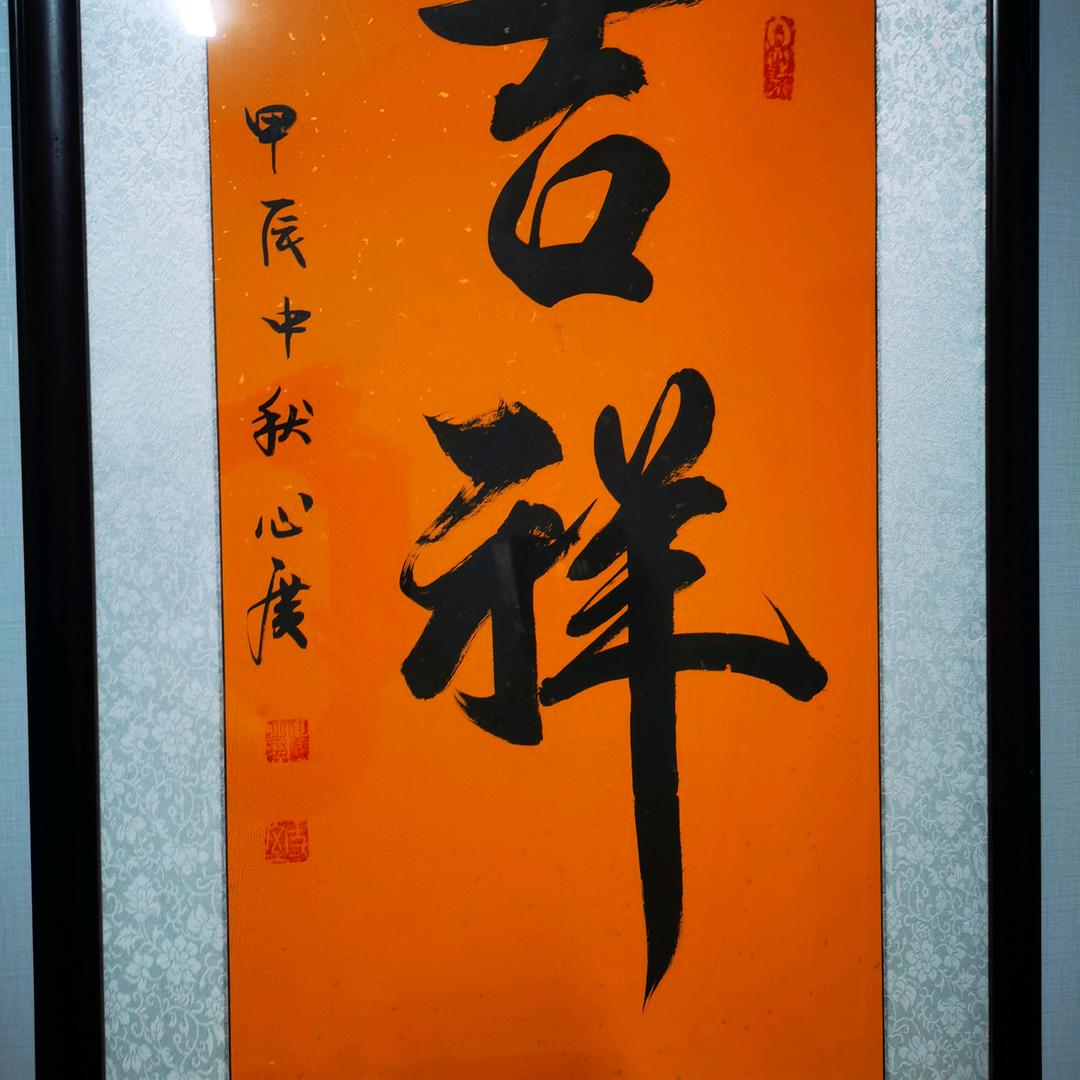 吉祥
甲辰中秋心广